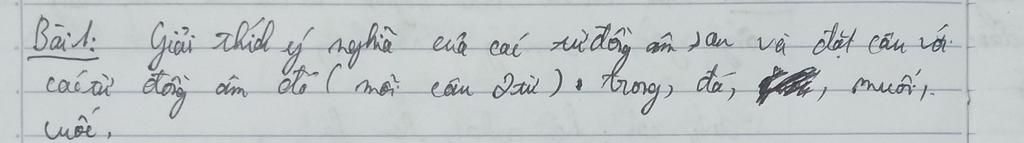 Bài 1: Giải thích ý nghĩa của các từ đồng âm sau và đặt câu với
các từ đồng âm đó (mỗi câu 2 từ). trong, đá, , muối,
cuốc.